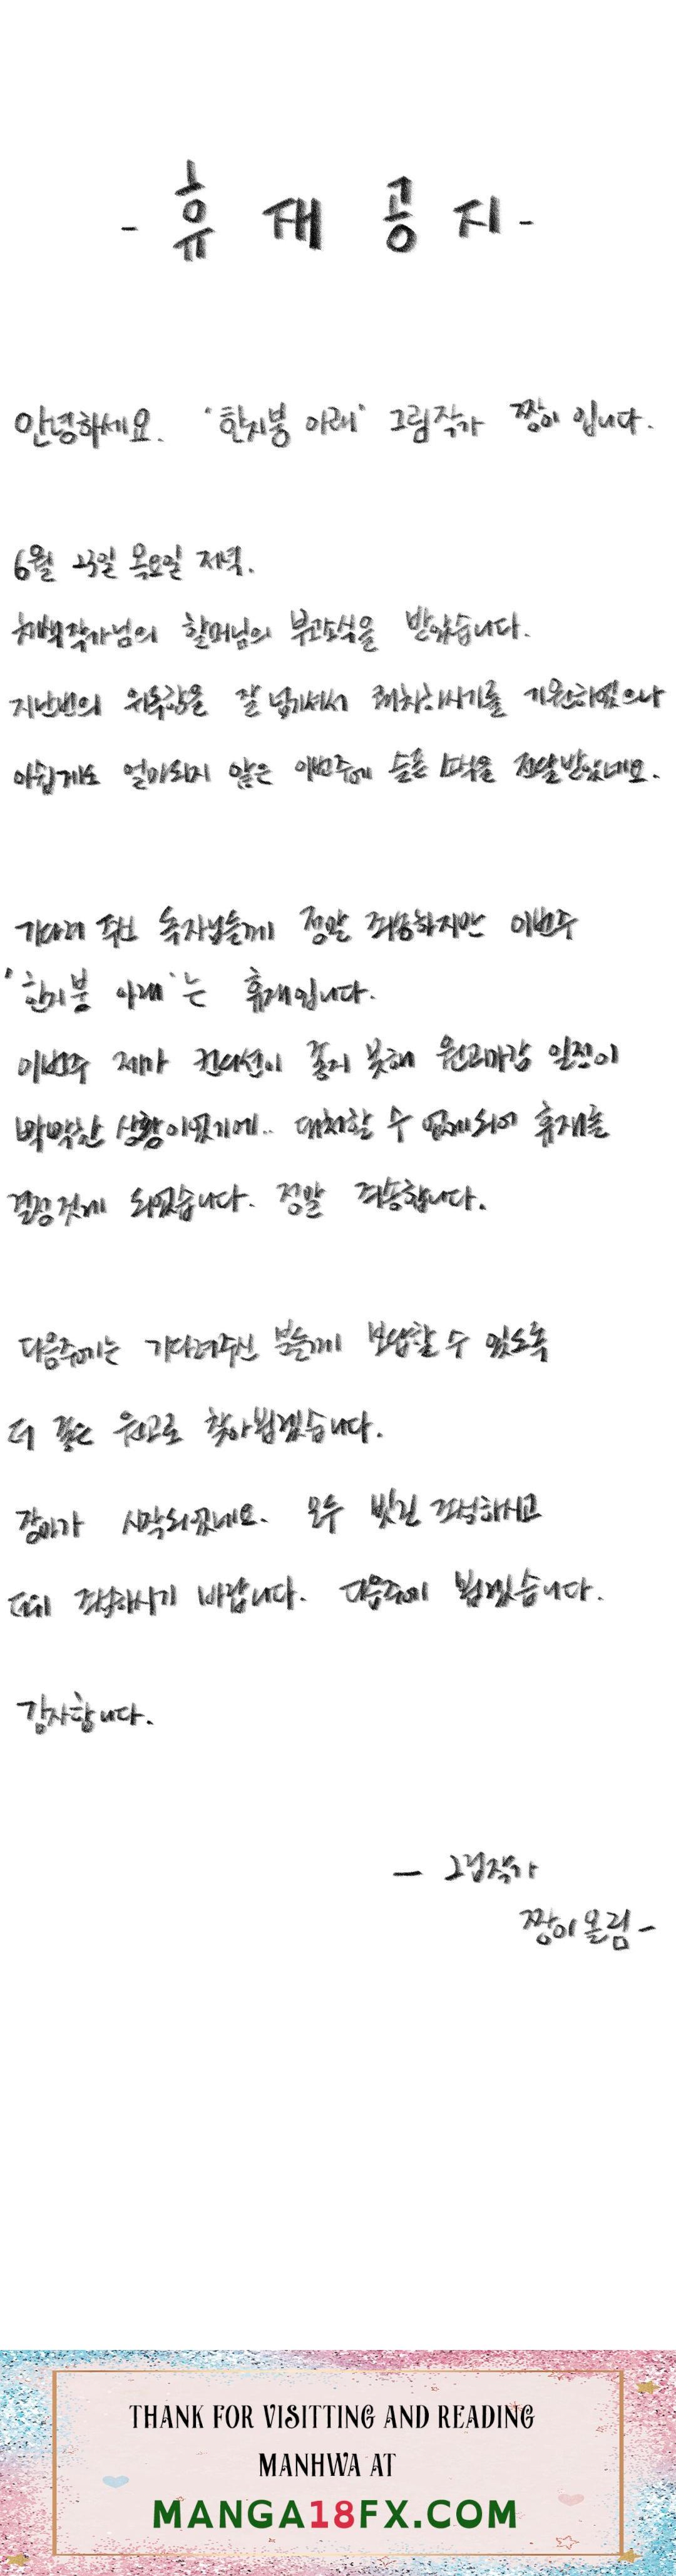 - 휴 재 공 지 -
안녕하세요. '한지붕 아래' 그림작가 짱이 입니다.
6월 23일 목요일 저녁.
작가님의 할머님의 부고소식을 받았습니다.
지난번의 위독함을 잘 넘기셔서 쾌차하시기를 기원하였으나
아쉽게도 얼마되지 않은 이번주에 슬픈 소식을 전달받았네요.
기다려 주신 독자님들께 정말 죄송하지만 이번주
'한지붕 아래'는 휴재입니다.
이번주 제가 컨디션이 좋지 못해 원고마감 일정이
빡빡한 상황이였기에.. 대처할 수 없게되어 휴재를
결정짓게 되었습니다. 정말 죄송합니다.
다음주에는 기다려주신 분들께 보답할 수 있도록
더 좋은 원고로 찾아뵙겠습니다.
장마가 시작되었네요. 모두 빗길 조심하시고
조심하시기 바랍니다. 다음주에 뵙겠습니다.
감사합니다.
- 그림작가
짱이 올림 -
THANK FOR VISITTING AND READING
MANHWA AT
MANGA18FX.COM